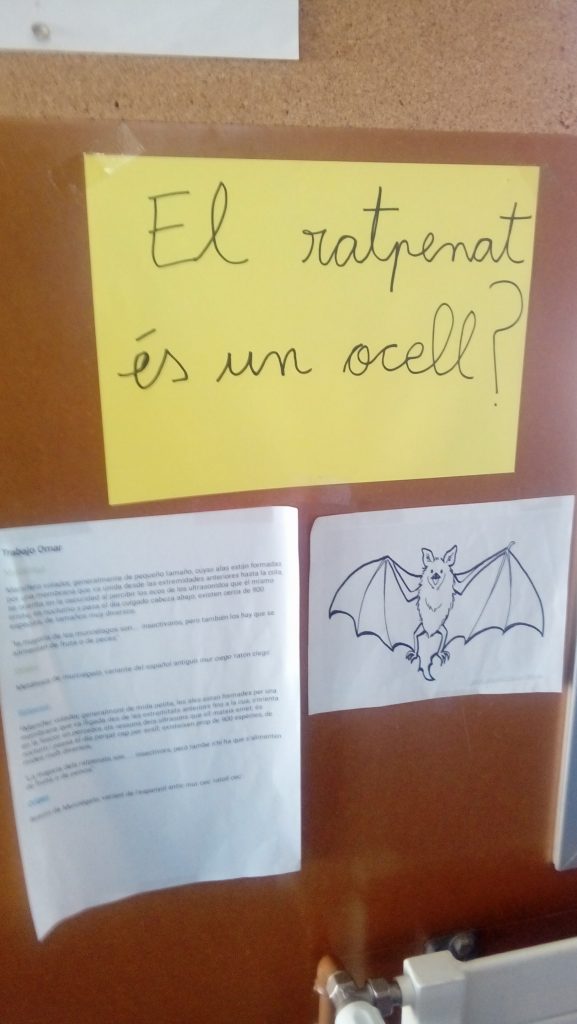 El ratpenat
és un ocell?
Trabajo Omar
Mamífero volador, generalmente de pequeño tamaño, cuyas alas están formadas
por una membrana que va unida desde las extremidades anteriores hasta la cola,
se orienta en la capacidad al percibir los ecos de los ultrasonidos que él mismo
emite; es nocturno y pasa el día colgado cabeza abajo, existen cerca de 900
especies, de tamaños muy diversos.
"la mayoría de los murciélagos son... insectívoros, pero también los hay que se
alimentan de fruta o de peces"
Metátesis de murciégalo, variante del español antiguo mur ciego 'ratón ciego'
"Mamífer volador, generalment de mida petita, les ales estan formades per una
membrana que va lligada des de les extremitats anteriors fins a la cua, s'orienta
nocturn i passa el dia penjat cap per avall, existeixen prop de 900 espècies, de
mides molt diverses.
"La majoria dels ratpenats son... insectívors, però també n'hi ha que s'alimenten
de fruita o de peixos"